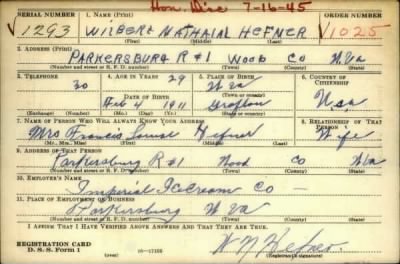 Hon. Disc 7-16-45
SERIAL NUMBER 1. NAME (Print) ORDER NUMBER
1293 WILBERT NATHAIAL HEFNER 1025
(First) (Middle) (Last)
2. ADDRESS (Print)
PARKERSBURG R#1 WOOD CO W.Va
(Number and street or R. F. D. number) (Town) (County) (State)
3. TELEPHONE 4. AGE IN YEARS 5. PLACE OF BIRTH 6. COUNTRY OF CITIZENSHIP
no 29 W Va
DATE OF BIRTH Grafton USA
Feb 4 1911
(Exchange) (Number) (Mo.) (Day) (Yr.) (State or country)
7. NAME OF PERSON WHO WILL ALWAYS KNOW YOUR ADDRESS 8. RELATIONSHIP OF THAT PERSON
Mrs Francis Louise Hefner Wife
(Mr., Mrs., Miss) (First) (Middle) (Last)
9. ADDRESS OF THAT PERSON
Parkersburg R#1 Wood Co W Va
(Number and street or R. F. D. number) (Town) (County) (State)
10. EMPLOYER'S NAME
Imperial Ice Cream Co
11. PLACE OF EMPLOYMENT OR BUSINESS
Parkersburg W Va
(Number and street or R. F. D. number) (Town) (County) (State)
I AFFIRM THAT I HAVE VERIFIED ABOVE ANSWERS AND THAT THEY ARE TRUE.
REGISTRATION CARD
D. S. S. Form 1 W N Hefner
(Registrant's signature)